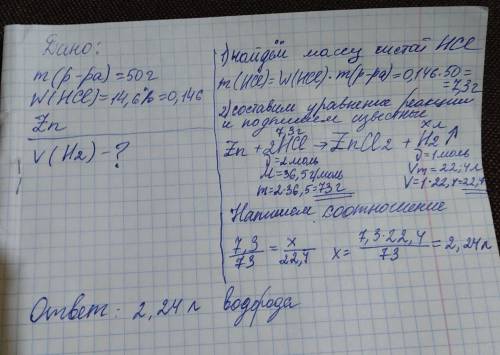 Дано:
m(р-ра)=50г
W(HCl)=14,6%=0,146
Zn
V(H2)-?
1) найдём массу чистой HCl
m(HCl)=W(HCl)·m(р-ра)=0,146·50=
=7,3г
2) составим уравнение реакции
и подпишем известные
7,3г x л
Zn + 2HCl → ZnCl2 + H2↑
ν=2моль ν=1моль
M=36,5г/моль Vm=22,4л
m=2·36,5=73г V=1·22,4=22,4
Напишем соотношение
7,3/73 = x/22,4 x= 7,3·22,4/73 = 2,24л
Ответ: 2,24л водорода